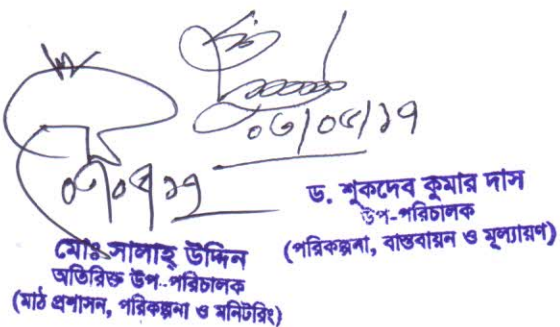 ০৩/০৫/১৭
ড. শুকদেব কুমার দাস
উপ-পরিচালক
(পরিকল্পনা, বাস্তবায়ন ও মূল্যায়ণ)
মোঃ সালাহ্ উদ্দিন
অতিরিক্ত উপ-পরিচালক
(মাঠ প্রশাসন, পরিকল্পনা ও মনিটরিং)